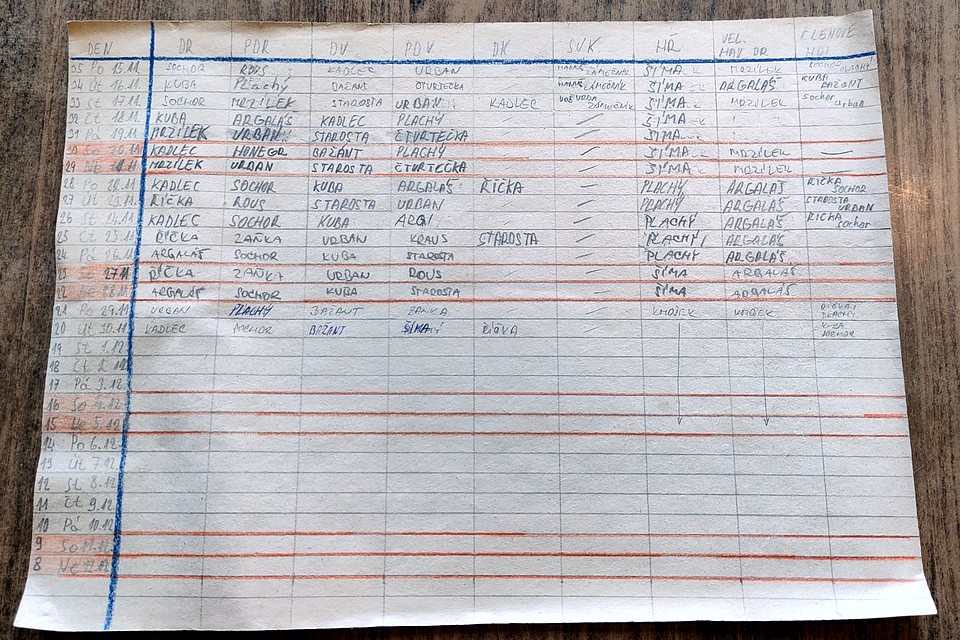 DEN DR PDR DV PDV DK SVK HŘ VEL. HAV DR ČLENOVÉ
35 Po 15.11 SOCHOR ROUS KADLEC URBAN ZÁMEČNÍK ŠÍMA MRZÍLEK SOCHOR PLACHÝ
34 Út 16.11 KUBA PLACHÝ BAŽANT ČTVRTEČKA ZÁMEČNÍK ŠÍMA ARGALÁŠ KUBA BAŽANT
33 St 17.11 SOCHOR MRZÍLEK STAROSTA URBAN KADLEC ZÁMEČNÍK ŠÍMA MRZÍLEK Sochor Urban
32 Čt 18.11 KUBA ARGALÁŠ KADLEC PLACHÝ ŠÍMA
31 Pá 19.11 MRZÍLEK URBAN STAROSTA ČTVRTEČKA ŠÍMA
30 So 20.11 KADLEC HONEGR BAŽANT PLACHÝ ŠÍMA MRZÍLEK
29 Ne MRZÍLEK URBAN STAROSTA ČTVRTEČKA ŠÍMA MRZÍLEK
28 Po KADLEC SOCHOR KUBA ARGALÁŠ ŘÍČKA PLACHÝ ARGALÁŠ ŘÍČKA SOCHOR
27 Út ŘÍČKA ROUS STAROSTA URBAN PLACHÝ ARGALÁŠ STAROSTA URBAN
26 St 24.11 KADLEC SOCHOR KUBA PLACHÝ ARGALÁŠ Sochor
25 Čt 25.11 ŘÍČKA ZAŇKA URBAN KRAUS STAROSTA PLACHÝ ARGALÁŠ
24 Pá 26.11 ARGALÁŠ SOCHOR KUBA STAROSTA PLACHÝ ARGALÁŠ
23 27.11 ŘÍČKA ZAŇKA URBAN ROUS ŠÍMA ARGALÁŠ
22 Ne 28.11 ARGALÁŠ SOCHOR KUBA STAROSTA ŠÍMA ARGALÁŠ
21 Po 29.11 URBAN PLACHÝ BAŽANT ZAŇKA PLACHÝ
20 Út 30.11 KADLEC SOCHOR BAŽANT ŠÍMA ŘÍČKA KUBA SOCHOR
19 St 1.12
18 Čt 2.12
17 Pá 3.12
16 So 4.12
15 Ne 5.12
14 Po 6.12
13 Út 7.12
12 St 8.12
11 Čt 9.12
10 Pá 10.12
9 So 11.12
8 Ne 12.12